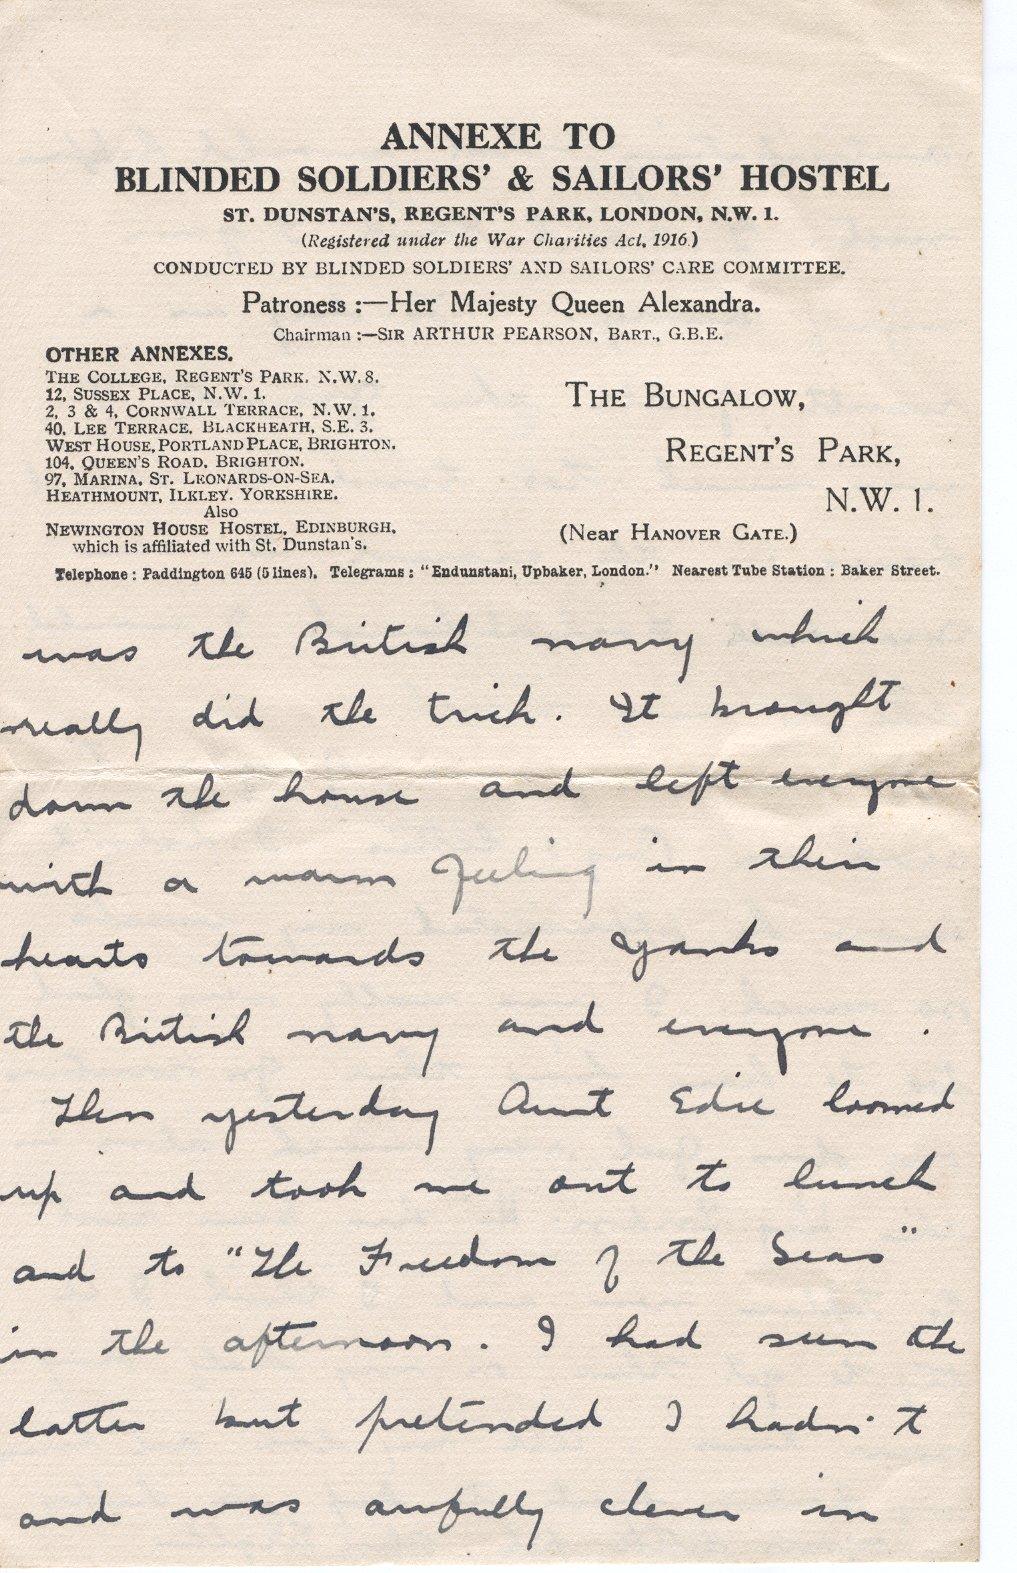 ANNEXE TO
BLINDED SOLDIERS' & SAILORS' HOSTEL
ST. DUNSTAN'S, REGENT'S PARK, LONDON, N.W. 1.
(Registered under the War Charities Act, 1916.)
CONDUCTED BY BLINDED SOLDIERS' AND SAILORS' CARE COMMITTEE.
Patroness :—Her Majesty Queen Alexandra.
Chairman :—SIR ARTHUR PEARSON, BART., G.B.E.
OTHER ANNEXES.
THE COLLEGE, REGENT'S PARK. N.W. 8.
12, SUSSEX PLACE, N.W. 1.
2, 3 & 4, CORNWALL TERRACE, N.W. 1.
40, LEE TERRACE, BLACKHEATH, S.E. 3.
WEST HOUSE, PORTLAND PLACE, BRIGHTON.
104, QUEEN'S ROAD. BRIGHTON.
97, MARINA, ST. LEONARDS-ON-SEA.
HEATHMOUNT, ILKLEY. YORKSHIRE.
Also
NEWINGTON HOUSE HOSTEL, EDINBURGH,
which is affiliated with St. Dunstan's.
THE BUNGALOW,
REGENT'S PARK,
N.W. 1.
(Near HANOVER GATE.)
Telephone : Paddington 645 (5 lines). Telegrams : "Endunstani, Upbaker, London." Nearest Tube Station : Baker Street.
was the British navy which
really did the trick. It brought
down the house and left everyone
with a warm feeling in their
hearts towards the Yanks and
the British navy and everyone.
Then yesterday Aunt Edie loomed
up and took me out to lunch
and to "The Freedom of the Seas"
in the afternoon. I had seen the
latter but pretended I hadn't
and was awfully clever in